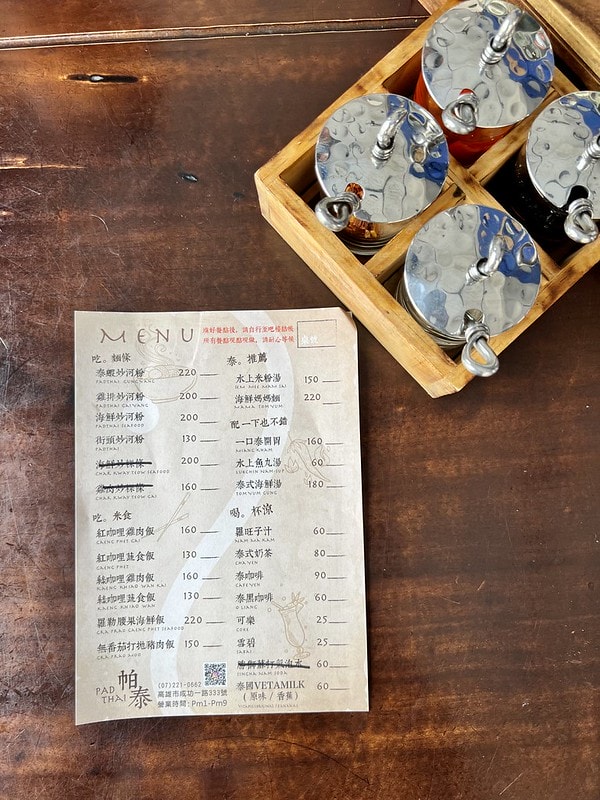 MENU
填好餐點後，請自行至吧檯點帳
所有餐點現點現做，請耐心等候
吃。麵條
泰蝦炒河粉 220
PADTHAI GUNG WANG
雞排炒河粉 200
PADTHAI GAIWANG
海鮮炒河粉 200
PADTHAI SEAFOOD
街頭炒河粉 130
PADTHAI
海鮮炒粿條 200
CHAR KWAY TEOW SEAFOOD
雞肉炒粿條 160
CHAR KWAY TEOW GAI
吃。米食
紅咖哩雞肉飯 160
GAENG PHET GAI
紅咖哩蔬食飯 130
GAENG PHET
綠咖哩雞肉飯 160
KAENG KHIAO WAN KAI
綠咖哩蔬食飯 130
KAENG KHIAO WAN
羅勒腰果海鮮飯 220
無番茄打拋豬肉飯 150
GRA PRAO MOO
泰。推薦
水上米粉湯 150
海鮮媽媽麵 220
MAMA TOM YUM
配一下也不錯
一口泰開胃 160
MIANG KHAM
水上魚丸湯 60
泰式海鮮湯 180
TOM YUM GUNG
喝。杯涼
羅旺子汁 60
NAM MA KAM
泰式奶茶 80
CHA YEN
泰咖啡 90
CAFE YEN
泰黑咖啡 60
O LIANG
可樂 25
COKE
雪碧 25
60
泰國VETAMILK 60
(原味 / 香蕉)
PAD THAI 帕泰
(07)221-0662
高雄市成功一路333號
營業時間:Pm1-Pm9